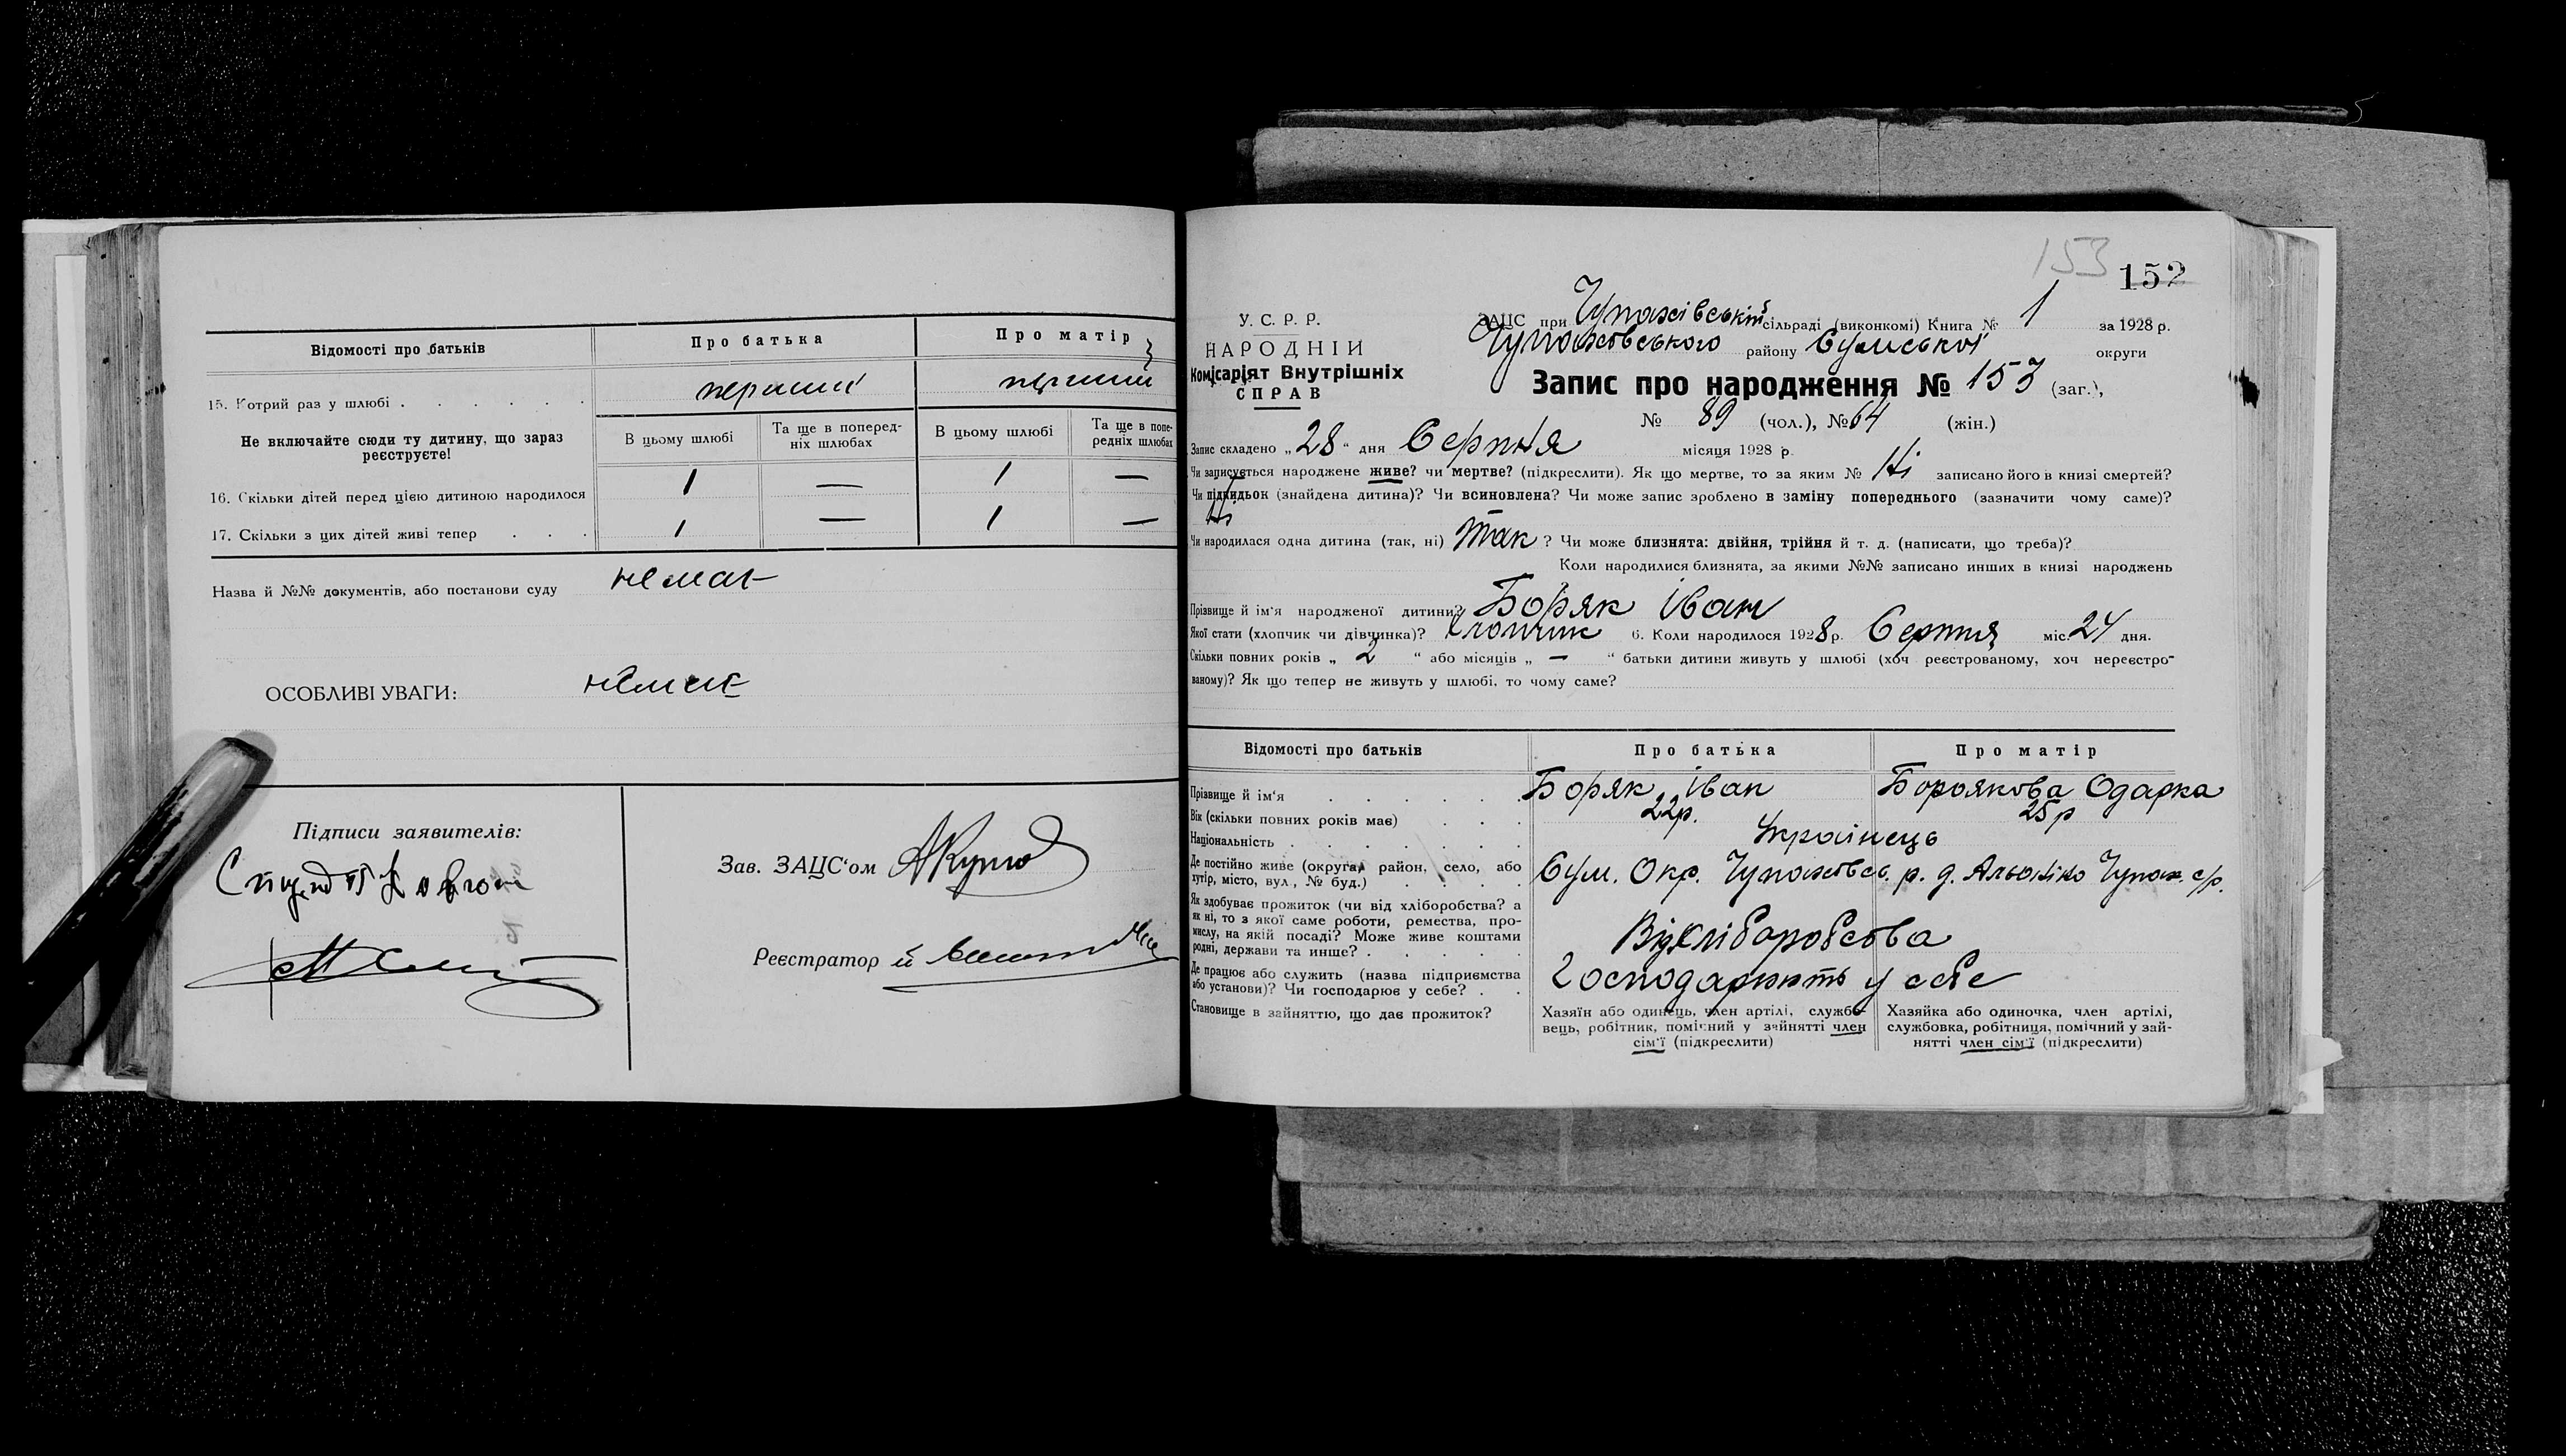 Відомості про батьків
Про батька
Про матір
15. Котрий раз у шлюбі
перший
перший
Не включайте сюди ту дитину, що зараз реєструєте!
В цьому шлюбі
Та ще в поперед-
ніх шлюбах
В цьому шлюбі
Та ще в попе-
редніх шлюбах
16. Скільки дітей перед цією дитиною народилося
1 — 1 —
17. Скільки з цих дітей живі тепер
1 — 1 —
Назва й №№ документів, або постанови суду немає
ОСОБЛИВІ УВАГИ: немає
Підписи заявителів:
Зав. ЗАЦС'ом
Реєстратор
153
152
У. С. Р. Р.
НАРОДНІЙ
Комісаріят Внутрішніх
СПРАВ
ЗАЦС при Чупахівській сільраді (виконкомі) Книга № 1 за 1928 р.
Чупахівського району Сумської округи
Запис про народження № 153 (заг.),
№ 89 (чол.), № 64 (жін.)
Запис складено „28" дня Серпня місяця 1928 р.
Чи записується народжене живе? чи мертве? (підкреслити). Як що мертве, то за яким № Ні записано його в книзі смертей?
Чи підкидьок (знайдена дитина)? Чи всиновлена? Чи може запис зроблено в заміну попереднього (зазначити чому саме)?
Ні
Чи народилася одна дитина (так, ні) Так ? Чи може близнята: двійня, трійня й т. д. (написати, що треба)?
Коли народилися близнята, за якими №№ записано инших в книзі народжень
Прізвище й ім'я народженої дитини? Боряк Іван
Якої стати (хлопчик чи дівчинка)? Хлопчик 6. Коли народилося 1928 р. Серпня міс. 24 дня.
Скільки повних років „ 2 " або місяців „ — " батьки дитини живуть у шлюбі (хоч реєстрованому, хоч нереєстро-
ваному)? Як що тепер не живуть у шлюбі, то чому саме?
Відомості про батьків
Про батька
Про матір
Прізвище й ім'я
Боряк Іван
Бороякова Одарка
Вік (скільки повних років має)
22р.
25р
Національність
Українець
Де постійно живе (округа, район, село, або
хутір, місто, вул., № буд.)
Сум. Окр. Чупахівсь. р. д. Альошіно Чупах. с/р.
Як здобуває прожиток (чи від хліборобства? а
як ні, то з якої саме роботи, ремества, про-
мислу, на якій посаді? Може живе коштами
родні, держави та инше?
Від хліборобсова
Де працює або служить (назва підприємства
або установи)? Чи господарює у себе?
Господарюють у себе
Становище в зайняттю, що дає прожиток?
Хазяїн або одинець, член артілі, службо-
вець, робітник, помічний у зайнятті член
сім'ї (підкреслити)
Хазяйка або одиночка, член артілі,
службовка, робітниця, помічний у зай-
нятті член сім'ї (підкреслити)